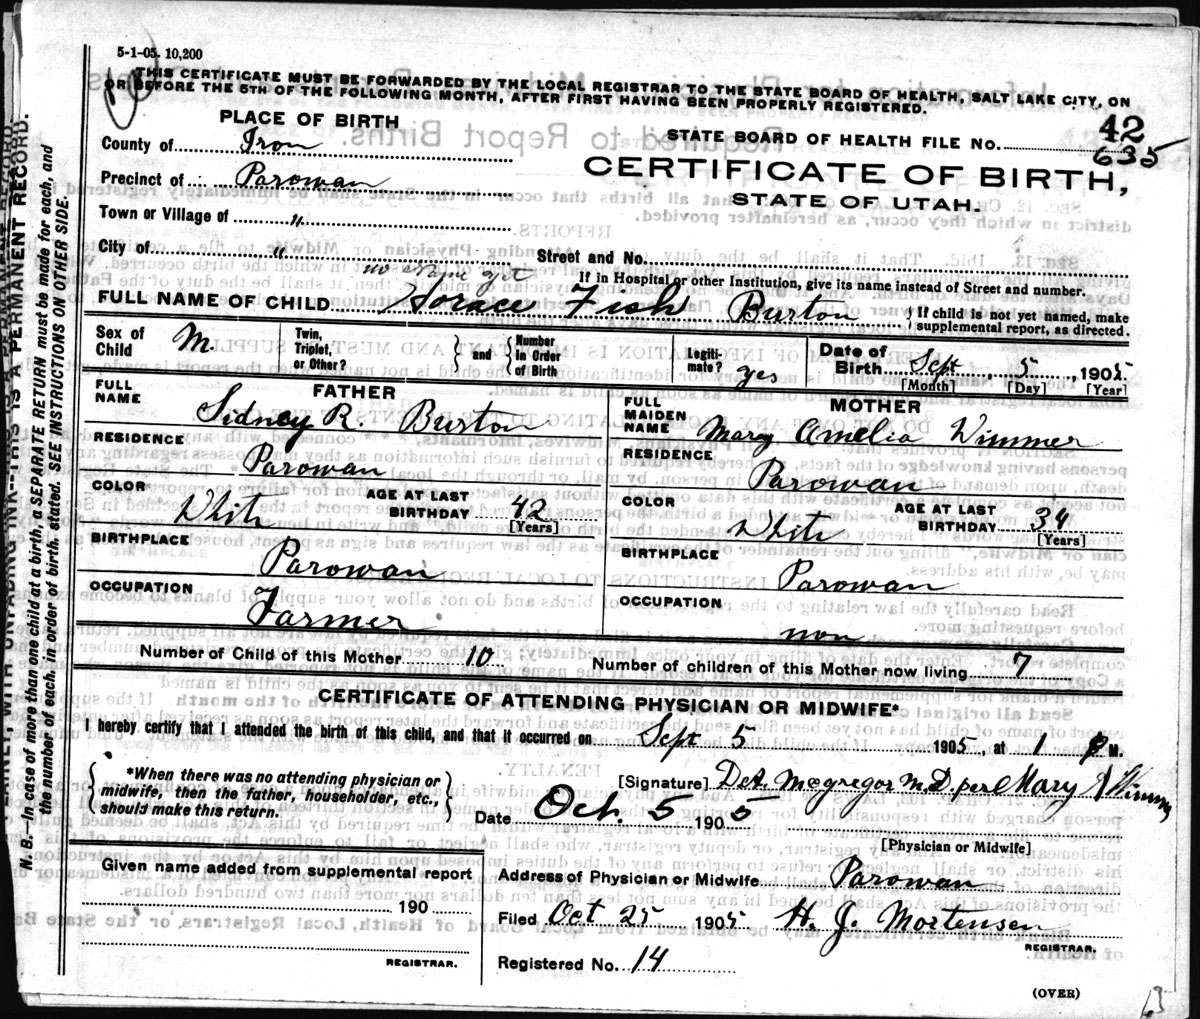 5-1-05. 10,200
THIS CERTIFICATE MUST BE FORWARDED BY THE LOCAL REGISTRAR TO THE STATE BOARD OF HEALTH, SALT LAKE CITY, ON
OR BEFORE THE 5TH OF THE FOLLOWING MONTH, AFTER FIRST HAVING BEEN PROPERLY REGISTERED.
PLACE OF BIRTH
County of Iron
Precinct of Parowan
Town or Village of "
City of "
STATE BOARD OF HEALTH FILE NO. 42
635
CERTIFICATE OF BIRTH,
STATE OF UTAH.
Street and No.
If in Hospital or other Institution, give its name instead of Street and number.
no name yet
FULL NAME OF CHILD Horace Fish Burton
If child is not yet named, make
supplemental report, as directed.
Sex of Child M.
Twin, Triplet, or Other?
and
Number in Order of Birth
Legiti-mate? yes
Date of Birth Sept 5, 1905
[Month] [Day] [Year]
FATHER
FULL NAME Sidney R. Burton
RESIDENCE Parowan
COLOR White
AGE AT LAST BIRTHDAY 42
[Years]
BIRTHPLACE Parowan
OCCUPATION Farmer
MOTHER
FULL MAIDEN NAME Mary Amelia Wimmer
RESIDENCE Parowan
COLOR White
AGE AT LAST BIRTHDAY 34
[Years]
BIRTHPLACE Parowan
OCCUPATION non
Number of Child of this Mother 10
Number of children of this Mother now living 7
CERTIFICATE OF ATTENDING PHYSICIAN OR MIDWIFE*
I hereby certify that I attended the birth of this child, and that it occurred on Sept 5 1905, at 1 P M.
*When there was no attending physician or
midwife, then the father, householder, etc.,
should make this return.
[Signature] McGregor M.D. per Mary
Date Oct. 5 1905
[Physician or Midwife]
Given name added from supplemental report
190
REGISTRAR.
Address of Physician or Midwife Parowan
Filed Oct 25 1905 H. J. Mortensen
REGISTRAR.
Registered No. 14
(OVER)
N. B.—In case of more than one child at a birth, a SEPARATE RETURN must be made for each, and
the number of each, in order of birth, stated. SEE INSTRUCTIONS ON OTHER SIDE.
WITH UNFADING INK—THIS IS A PERMANENT RECORD.